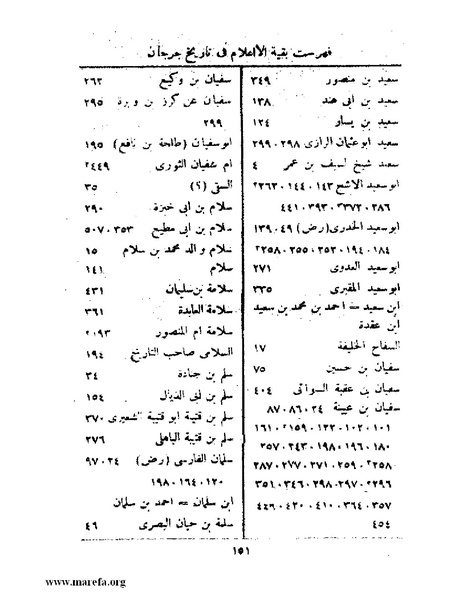 فهرست بقية الأعلام فى تاريخ جرجان
سعيد بن منصور ٣٤٩
سعيد بن ابى هند ١٣٨
سعيد بن يسار ١٢٤
سعيد ابوعثمان الرازى ٢٩٨،٢٩٩
سعيد شيخ لسيف بن عمر ٤
ابوسعيد الاشج ١٤٣،١٤٤،٢٦٣
٣٨٦،٣٧٢،٣٩٣،٤٤١
ابوسعيد الخدرى (رض) ٤٩،١٣٩
١٨٤،١٩٤،٣٥٣،٣٥٥،٣٥٨
ابوسعيد العدوى ٢٧١
ابوسعيد المقبرى ٣٣٥
ابن سعيد = احمد بن محمد بن سعيد
ابن عقدة
السفاح الخليفة ١٧
سفيان بن حسين ٧٥
سفيان بن عقبة السوائى ٤٠٤
سفيان بن عيينة ٣٤،٨٦،٨٧
١٠١،١٠٢،١٢٢،١٥٩،١٦١
١٨٠،١٩٦،١٩٨،٢٤٣،٢٥٧
٢٥٨،٢٥٩،٢٧١،٢٧٧،٢٨٧
٢٩٦،٢٩٧،٢٩٨،٣٤٦،٣٥١
٣٥٧،٣٦٤،٤١٠،٤٢٠،٤٤٦
٤٥٤
سفيان بن وكيع ٢٦٣
سفيان عن كرز بن وبرة ٢٩٥
٢٩٩
ابوسفيان (طلحة بن نافع) ١٩٥
ام سفيان الثورى ٤٤٩
السقى (؟) ٣٥
سلام بن ابى خبزة ٢٩٠
سلام بن ابى مطيع ٣٥٣،٥٠٧
سلام والد محمد بن سلام ١٥
سلام ١٤١
سلامة بن سليمان ٤٣١
سلامة العابدة ٣٦١
سلامة ام المنصور ٩٣
السلامى صاحب التاريخ ١٩٤
سلم بن جنادة ٣٤
سلم بن ابى الذيال ١٥٤
سلم بن قتيبة ابو قتيبة الشعيرى ٣٧٠
سلم بن قتيبة الباهلى ٢٧٦
سلمان الفارسى (رض) ٣٤،٩٧
١٢٠،١٦٤،١٩٨
ابن سلمان = احمد بن سلمان
سلمة بن حيان البصرى ٤٦
١٥١
www.marefa.org